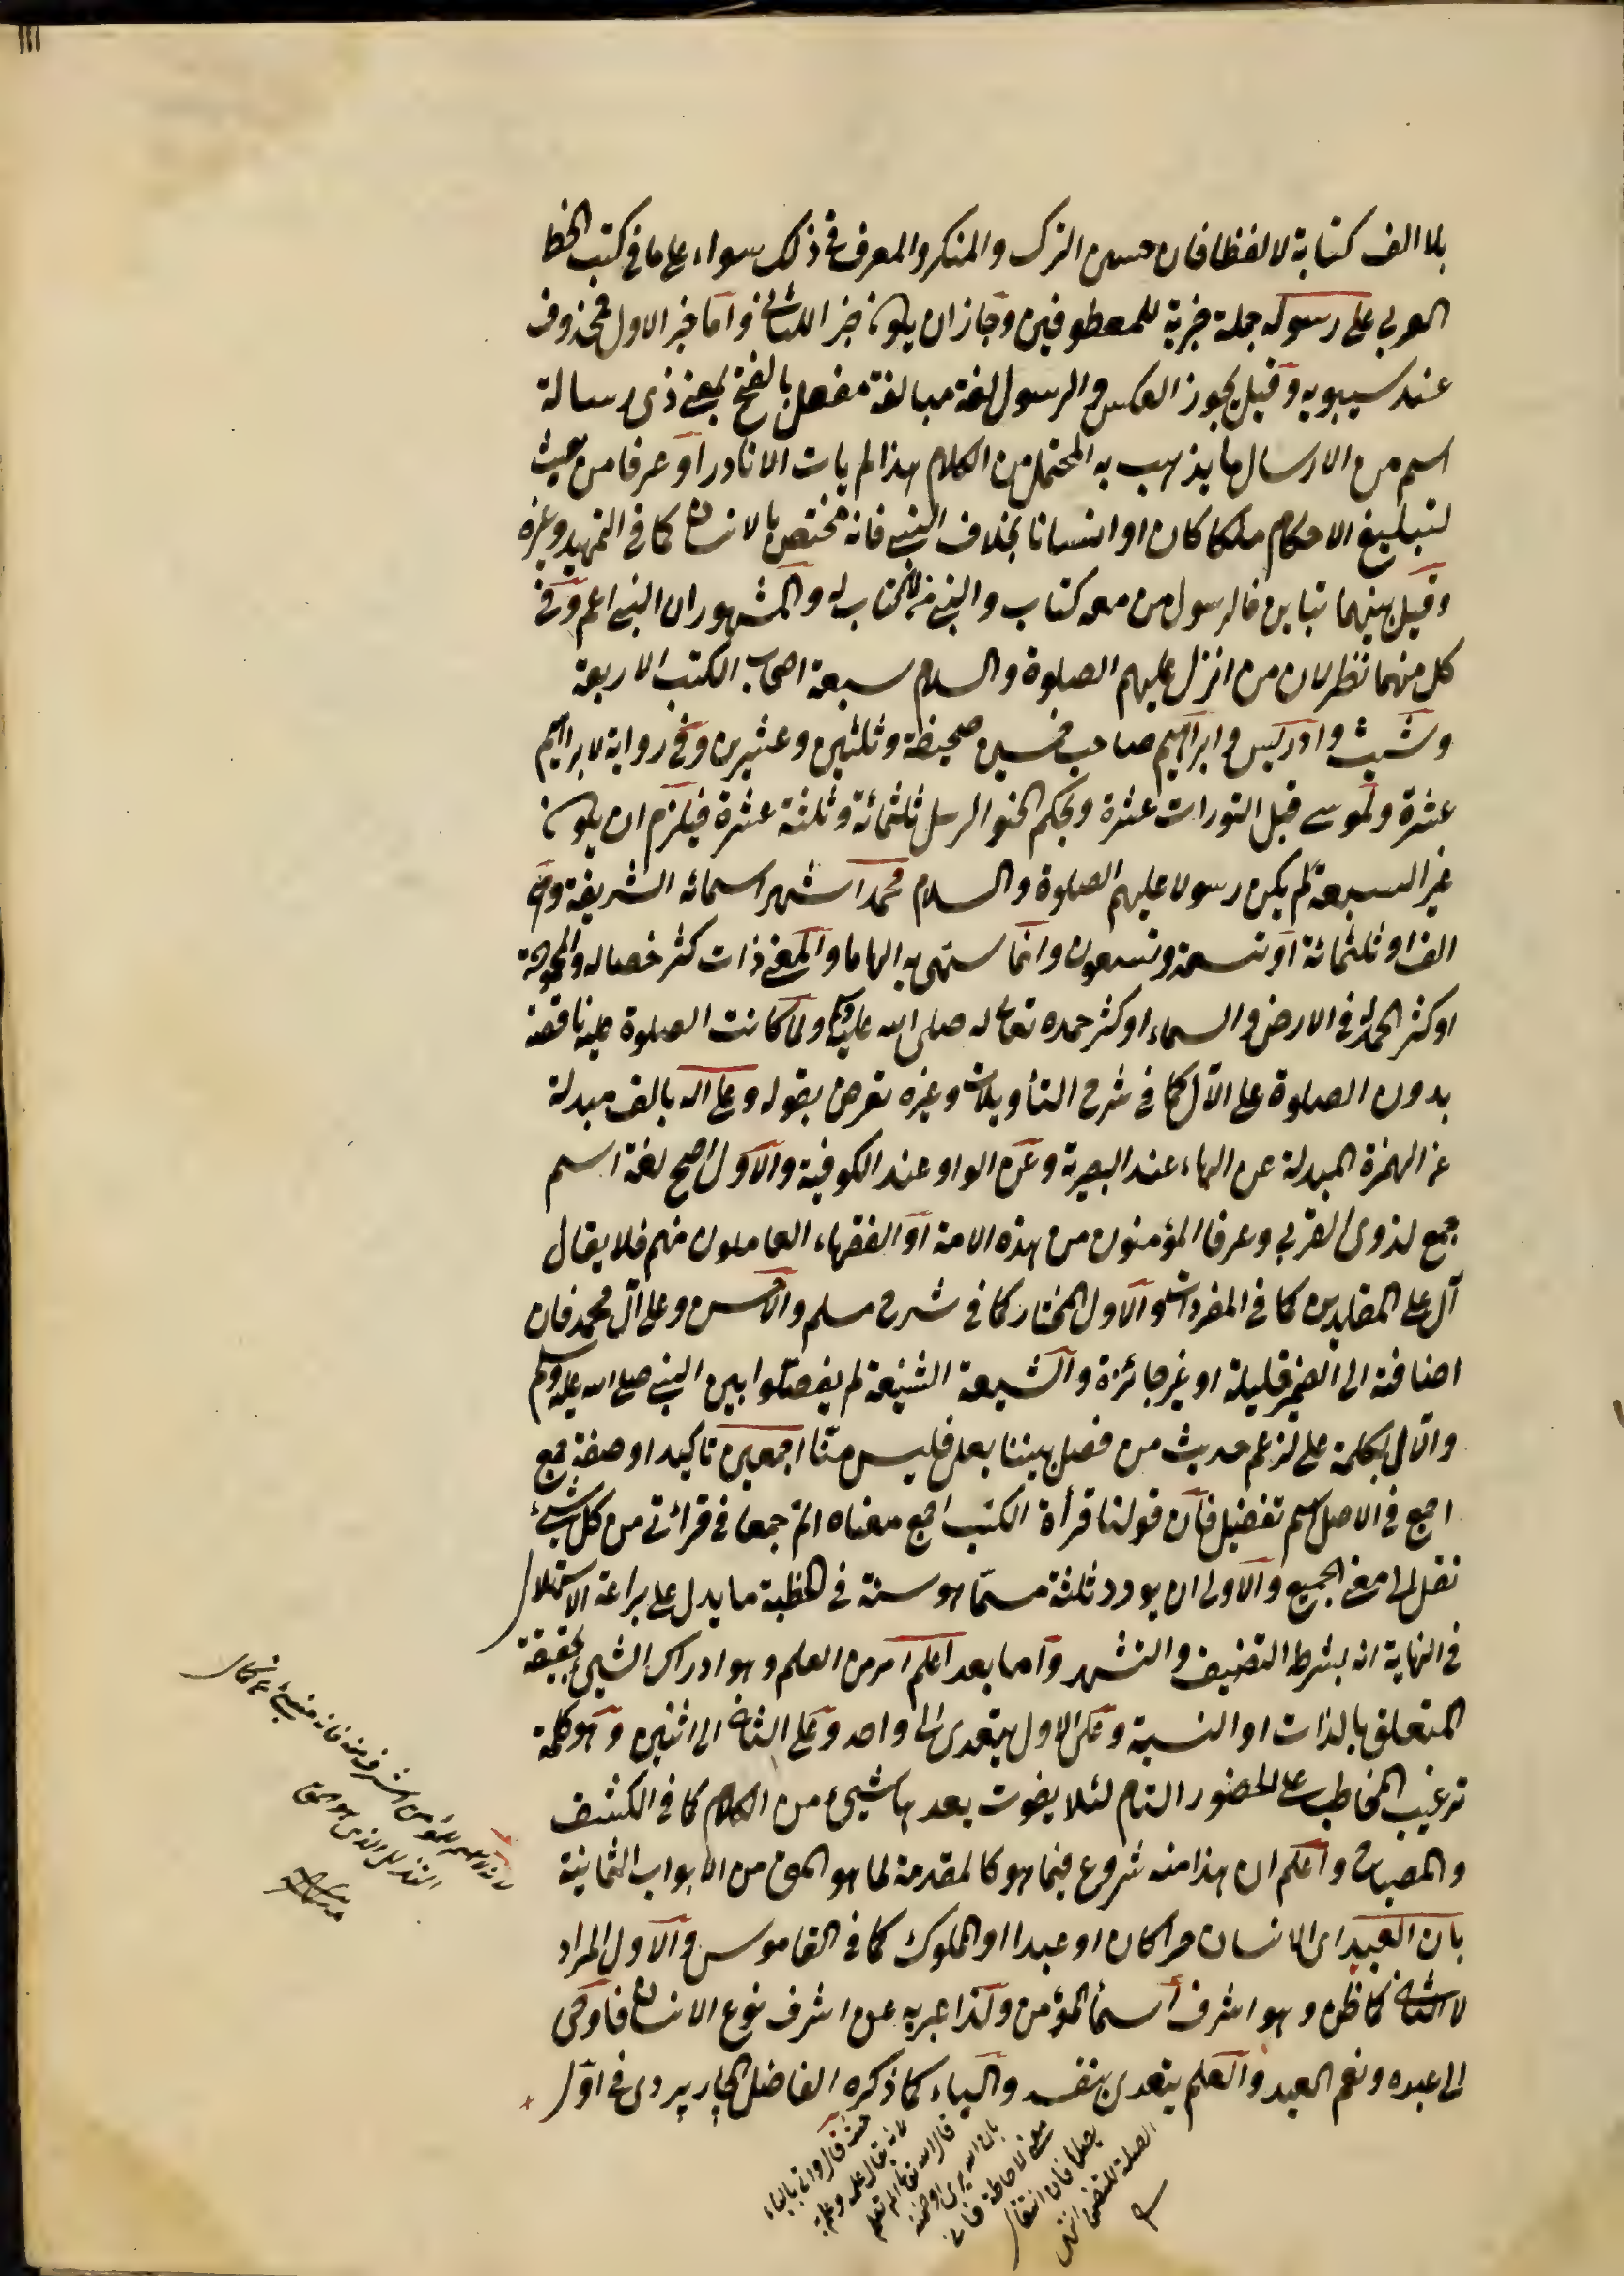 بلا الف كتابة لا لفظا فان حسن الترك والمنكر والمعرف فى ذلك سواء على ما فى كتب الخط
العربى على رسوله جملة خبرية للمعطوفين وجاز ان يكون خبرا للثانى واما خبر الاول فمحذوف
عند سيبويه وقيل يجوز العكس والرسول لغة مبالغة مفعل بالفتح بمعنى ذى رسالة
اسم من الارسال ما يذهب به المحتمل من الكلام هذا لم يات الا نادرا او عرفا من بعث
لتبليغ الاحكام ملكا كان او انسانا بخلاف النبى فانه مختص بالانسان كما فى التمهيد وغيره
وقيل بينهما تباين فالرسول من معه كتاب والنبى من لا كتاب له والمشهور ان النبى اعم وفى
كل منهما نظر لان من انزل عليهم الصلوة والسلام سبعة اصحاب الكتب الاربعة
وشيث وادريس وابراهيم صاحب خمسين صحيفة وثلثين وعشرين وفى رواية لابراهيم
عشرة ولموسى قبل التورات عشرة وبحكم النحو الرسل ثلثمائة وثلثة عشرة فيلزم ان يكون
غير السبعة لم يكن رسولا عليهم الصلوة والسلام محمد اشهر اسمائه الشريفة وهى
الف او ثلثمائة او تسعة وتسعون وانما سمى به الهاما والمعنى ذات كثر خصاله المحمودة
او كثر الحمد له فى الارض والسماء او كثر حمده تعالى له صلى الله عليه وسلم ولما كانت الصلوة عليه ناقصة
بدون الصلوة على الآل كما فى شرح التأويلات وغيره تعرض بقوله وعلى آله بالف مبدلة
عن الهمزة المبدلة عن الهاء عند البصرية وعن الواو عند الكوفية والاول اصح لغة اسم
جمع لذوى القربى وعرفا المؤمنون من هذه الامة او الفقهاء العاملون منهم فلا يقال
آل على المقلدين كما فى المفردات والاول المختار كما فى شرح مسلم والاحسن وعلى آل محمد فان
اضافته الى الضمير قليلة او غير جائزة والشيعة الشنيعة لم يفصلوا بين النبى صلى الله عليه وسلم
والآل بكلمة على لزعم حديث من فصل بيننا بعلى فليس منا اجمعين تاكيد او صفة جمع
اجمع فى الاصل اسم تفضيل فان قولنا قرأة الكتب اجمع معناه اتم جمعا فى قرائتى من كل شئ
نقل الى معنى الجميع والاولى ان يورد ثلثة مما هو سنة فى الخطبة ما يدل على براعة الاستهلال
فى النهاية انه بشرط التصنيف والتشهد واما بعد اعلم امر من العلم وهو ادراك الشئ بحقيقة
المتعلق بالذات او النسبة وعلى الاول يتعدى الى واحد وعلى الثانى الى اثنين وهو كلمة
ترغيب المخاطب على الحضور التام لئلا يفوت بعد ها شئ من الكلام كما فى الكشف
والمصباح واعلم ان هذا منه شروع فيما هو كالمقدمة لما هو المق من الابواب الثمانية
بان العبد اى الانسان حرا كان او عبدا او المملوك كما فى القاموس والاول المراد
لا الثانى كما ظن وهو اشرف اسماء المؤمن ولذا عبر به عن اشرف نوع الانسان فاوحى
الى عبده ونعم العبد والعلم يتعدى بنفسه والباء كما ذكره الفاضل الجاربردى فى اول
من اشرف منه فانه
التذلل الذى هو
حيث قال واتى بالباء
لانه يقال علمه وعلم به
قال الله تعالى الم تعلم
بان الله يرى
معنى الاحاطة